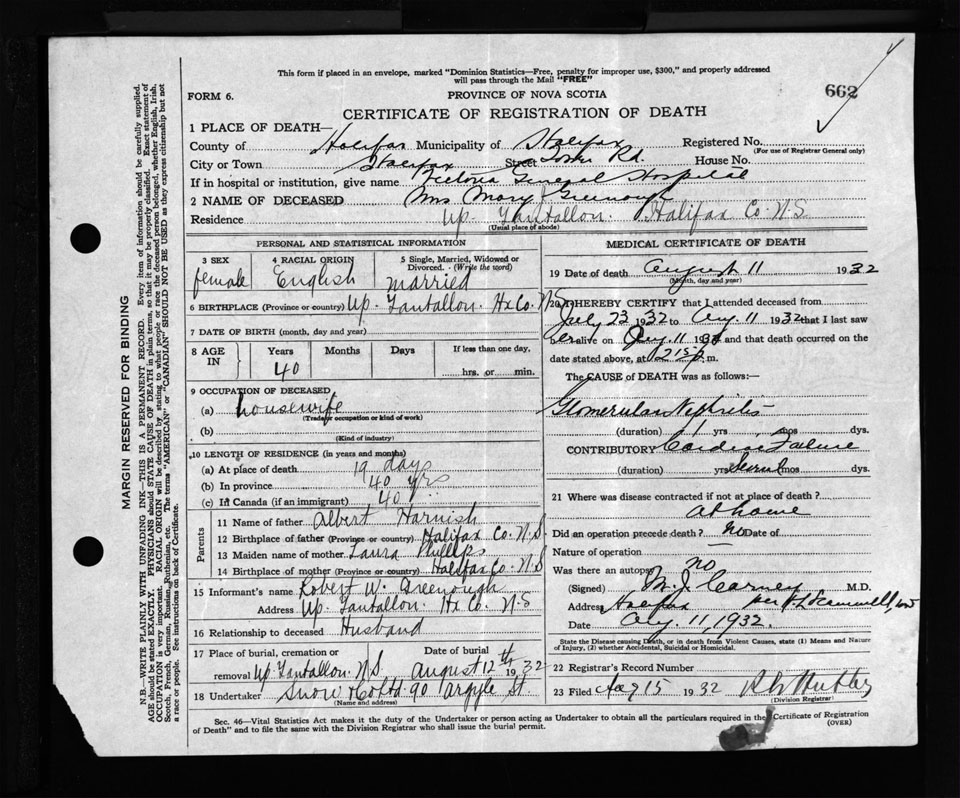 This form if placed in an envelope, marked "Dominion Statistics—Free, penalty for improper use, $300," and properly addressed
will pass through the Mail "FREE"
FORM 6.
PROVINCE OF NOVA SCOTIA
662
CERTIFICATE OF REGISTRATION OF DEATH
1 PLACE OF DEATH—
County of Halifax Municipality of Halifax Registered No.
(For use of Registrar General only)
City or Town Halifax Street Rd. House No.
If in hospital or institution, give name Victoria General Hospital
2 NAME OF DECEASED Mrs Mary Greenough
Residence Up. Tantallon. Halifax Co. N.S
(Usual place of abode)
PERSONAL AND STATISTICAL INFORMATION
3 SEX
female
4 RACIAL ORIGIN
English
5 Single, Married, Widowed or
Divorced. (Write the word)
married
6 BIRTHPLACE (Province or country) Up. Tantallon. Hx Co. N.S
7 DATE OF BIRTH (month, day and year)
8 AGE IN
Years Months Days If less than one day,
40 hrs. or min.
9 OCCUPATION OF DECEASED
(a) housewife
(Trade or occupation or kind of work)
(b)
(Kind of industry)
10 LENGTH OF RESIDENCE (in years and months)
(a) At place of death 19 days
(b) In province 40 yrs
(c) In Canada (if an immigrant) 40 "
Parents
11 Name of father Albert Harnish
12 Birthplace of father (Province or country) Halifax Co. N.S.
13 Maiden name of mother Laura Phillips
14 Birthplace of mother (Province or country) Halifax Co. N.S
15 Informant's name Robert W. Greenough
Address Up. Tantallon. Hx Co. N.S
16 Relationship to deceased Husband
17 Place of burial, cremation or Date of burial
removal Up. Tantallon. N.S. August 12th 1932
18 Undertaker Snow & Co Ltd 90 Argyle St.
(Name and address)
MEDICAL CERTIFICATE OF DEATH
19 Date of death August 11 1932
(Month, day and year)
20 I HEREBY CERTIFY that I attended deceased from
July 23 1932 to Aug. 11 1932 that I last saw
her alive on Aug 11 1932 and that death occurred on the
date stated above, at 215 p.m.
The CAUSE of DEATH was as follows:—
Glomerular Nephritis
(duration) yrs mos dys.
CONTRIBUTORY Cardiac Failure
(duration) yrs mos dys.
21 Where was disease contracted if not at place of death?
at home
Did an operation precede death? no Date of
Nature of operation —
Was there an autopsy no
(Signed) M. J. Carney M.D.
Address Halifax per
Date Aug. 11, 1932.
State the Disease causing Death, or in death from Violent Causes, state (1) Means and Nature
of Injury, (2) whether Accidental, Suicidal or Homicidal.
22 Registrar's Record Number
23 Filed Aug 15 1932
(Division Registrar)
Sec. 46—Vital Statistics Act makes it the duty of the Undertaker or person acting as Undertaker to obtain all the particulars required in the Certificate of Registration
of Death" and to file the same with the Division Registrar who shall issue the burial permit.
(OVER)
MARGIN RESERVED FOR BINDING
N.B.—WRITE PLAINLY WITH UNFADING INK—THIS IS A PERMANENT RECORD. Every item of information should be carefully supplied.
AGE should be stated EXACTLY. PHYSICIANS should STATE CAUSE OF DEATH in plain terms, so that it may be properly classified. Exact statement of
OCCUPATION is very important. RACIAL ORIGIN will be described by stating to what people or race the deceased person belonged, whether English, Irish,
Scotch, French, German, Russian, Ruthenian, etc. The terms "AMERICAN" or "CANADIAN" SHOULD NOT BE USED as they express citizenship but not
a race or people. See instructions on back of Certificate.